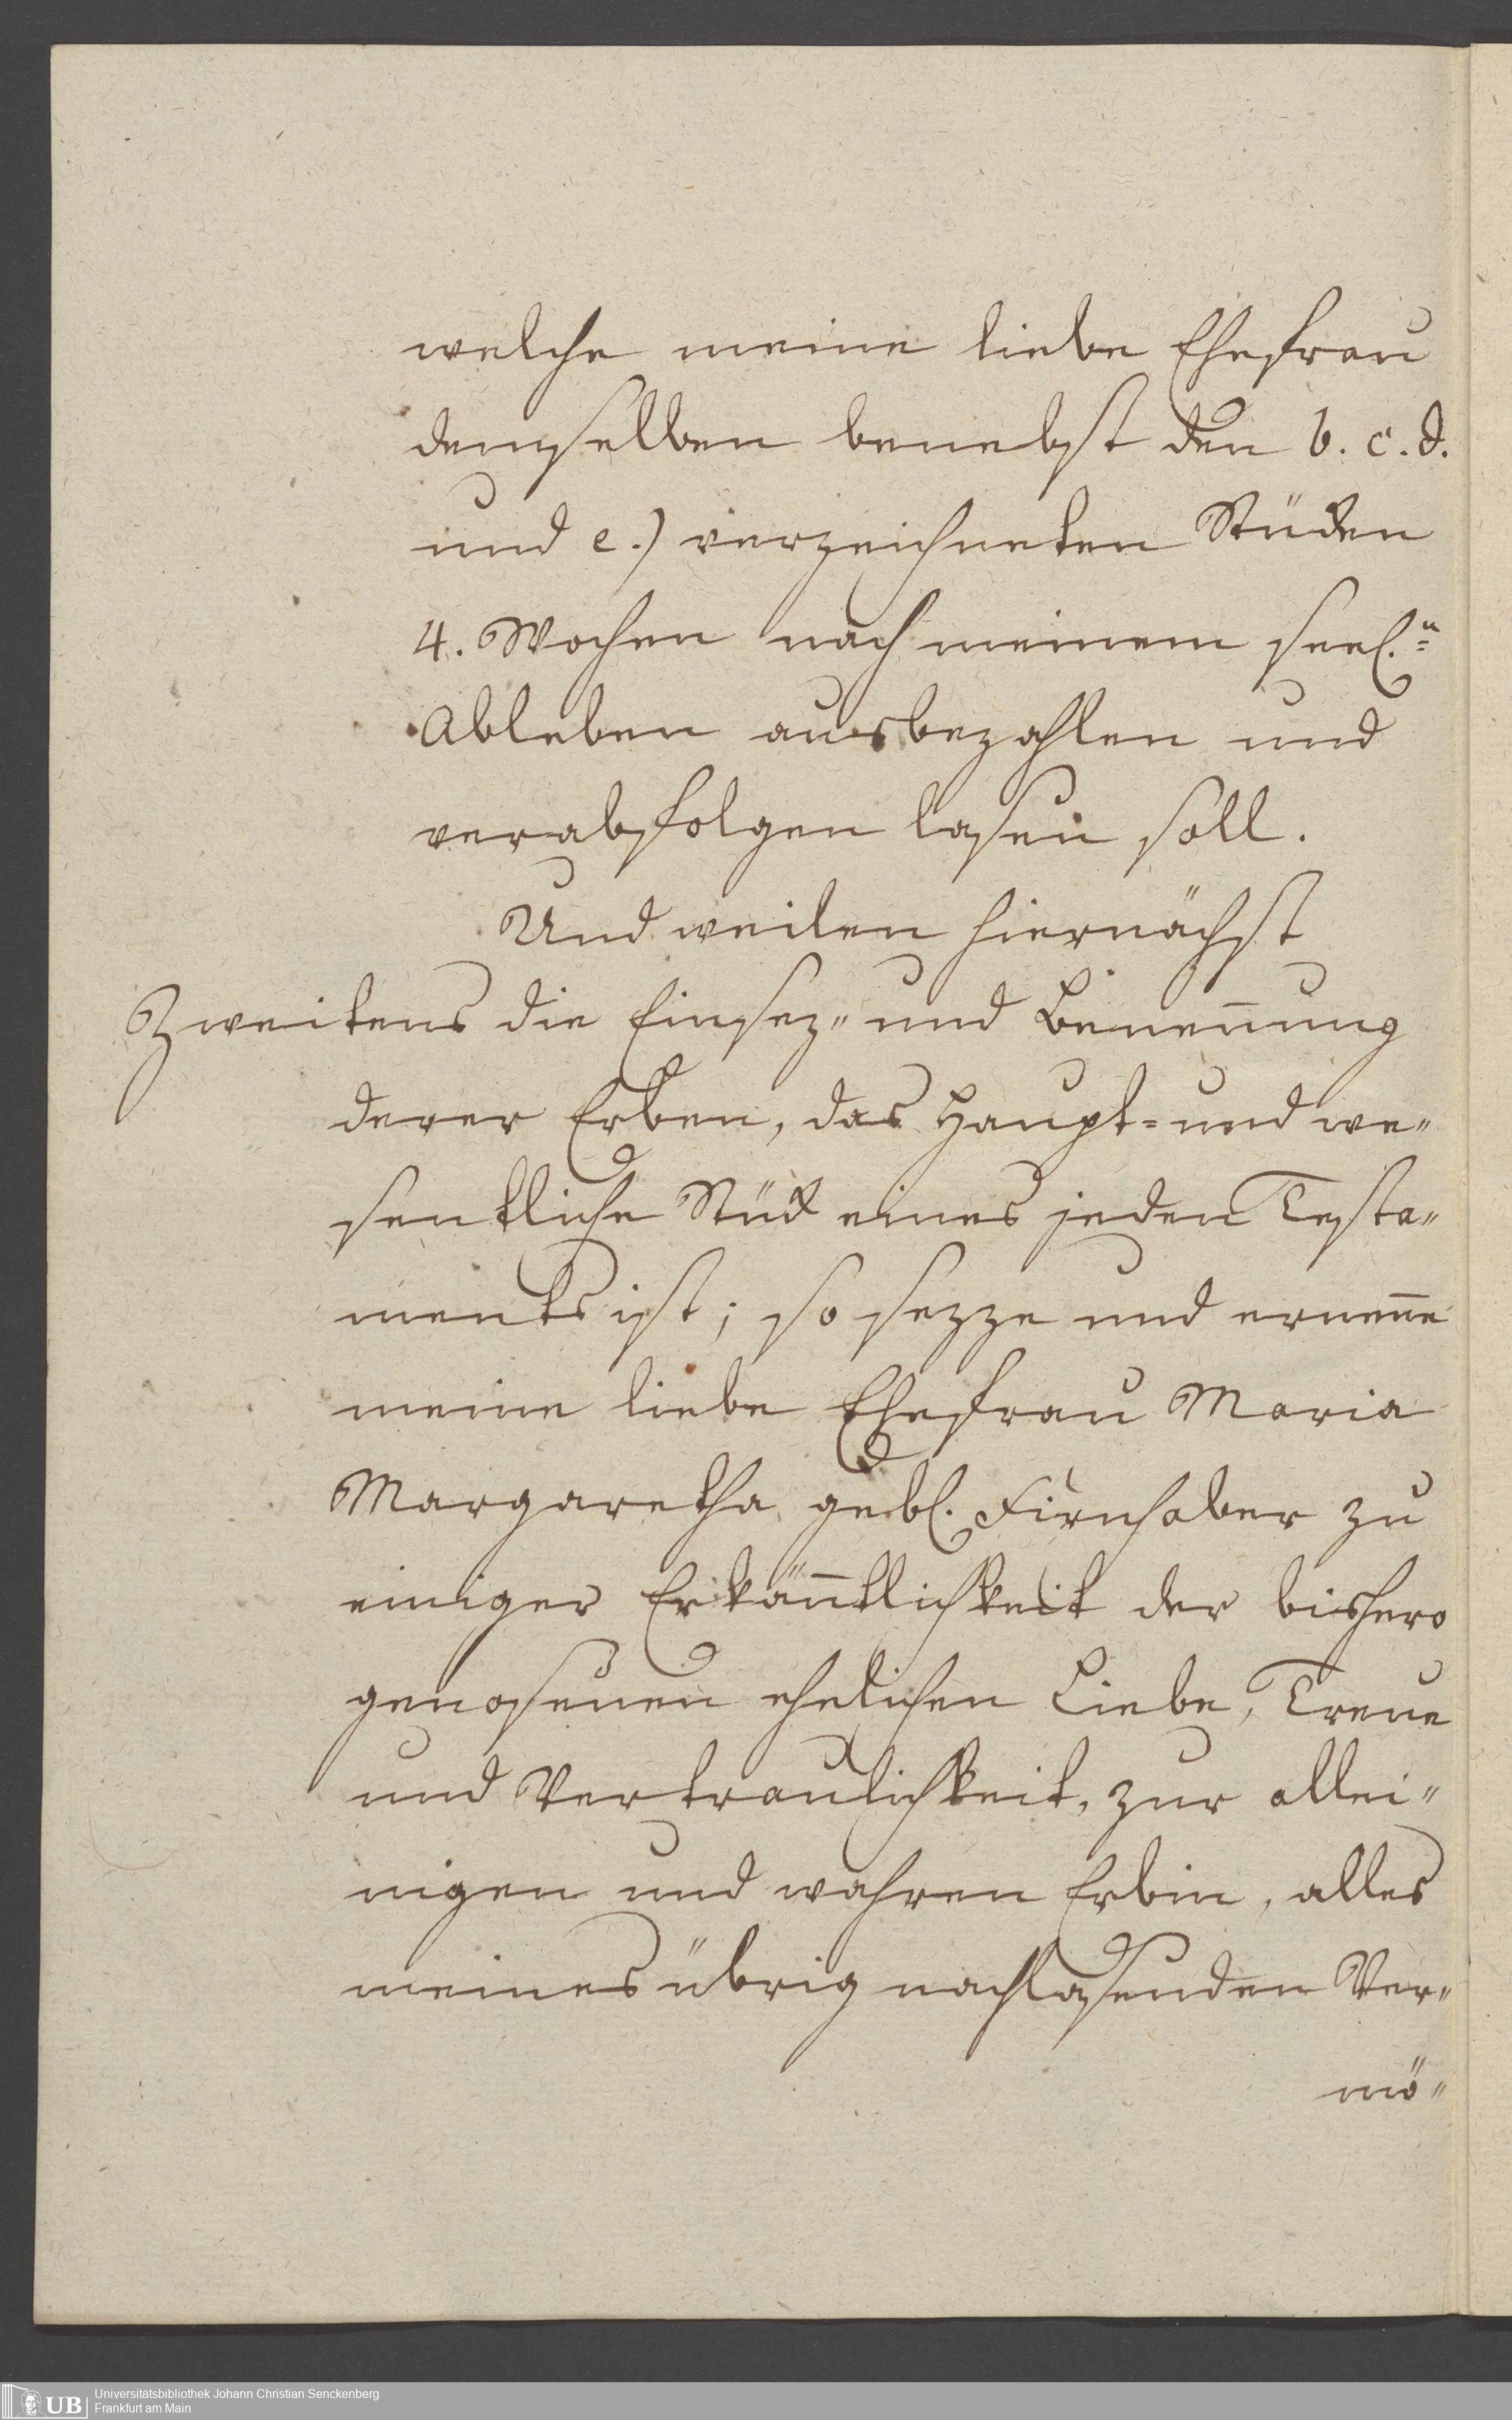 welche meine liebe Ehefrau
demselben benebst den b. c. d.
und e.) verzeichneten Stücken
4. Wochen nach meinem seel.n
Ableben ausbezahlen und
verabfolgen lasen soll.
Und weilen hiernächst
Zweitens die Einsez- und Benen̄ung
derer Erben, das Haupt- und we-
sentliche Stück eines jeden Testa-
ments ist; so sezze und ernen̄e
meine liebe Ehefrau Maria
Margaretha gebl. Firnhaber zu
einiger Erkän̄tlichkeit der bishero
genosenen ehelichen Liebe, Treue
und Vertraulichkeit, zur allei-
nigen und wahren Erbin, alles
meines übrig nachlasenden Ver-
mö-
Universitätsbibliothek Johann Christian Senckenberg
Frankfurt am Main
UB